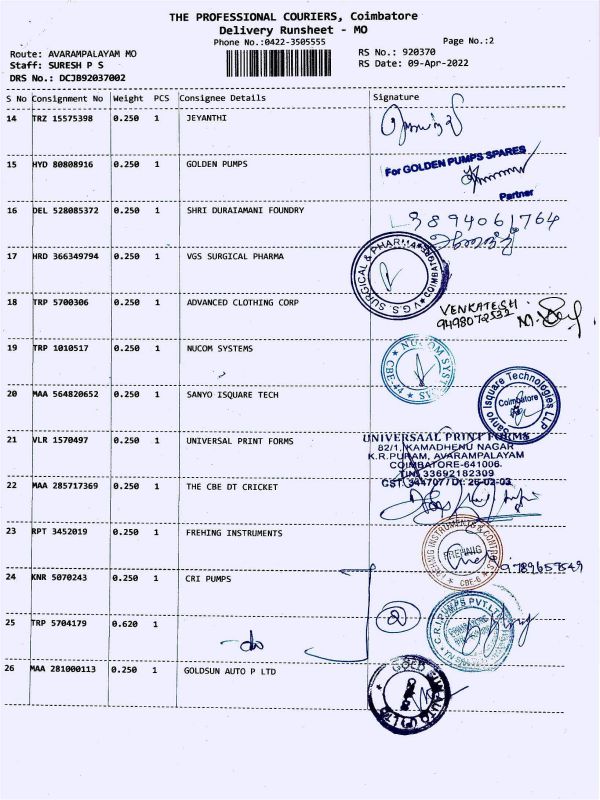 THE PROFESSIONAL COURIERS, Coimbatore
Delivery Runsheet - MO
Phone No.:0422-3505555
Page No.:2
Route: AVARAMPALAYAM MO
RS No.: 920370
Staff: SURESH P S
RS Date: 09-Apr-2022
DRS No.: DCJB92037002
S No Consignment No Weight PCS Consignee Details Signature
14 TRZ 15575398 0.250 1 JEYANTHI
15 HYD 80808916 0.250 1 GOLDEN PUMPS
For GOLDEN PUMPS SPARES
Partner
16 DEL 528085372 0.250 1 SHRI DURAIAMANI FOUNDRY
9894061764
17 HRD 366349794 0.250 1 VGS SURGICAL PHARMA
V.G.S. SURGICAL & PHARMA COIMBATORE
18 TRP 5700306 0.250 1 ADVANCED CLOTHING CORP
VENKATESH
9498072532
19 TRP 1010517 0.250 1 NUCOM SYSTEMS
NUCOM SYSTEMS CBE-44
20 MAA 564820652 0.250 1 SANYO ISQUARE TECH
Sanyo Isquare Technologies LLP
Coimbatore
21 VLR 1570497 0.250 1 UNIVERSAL PRINT FORMS
UNIVERSAAL PRINT FORMS
82/1, KAMADHENU NAGAR
K.R.PURAM, AVARAMPALAYAM
COIMBATORE-641006.
TIN: 33692182309
CST: 344707/ Dt: 26-02-03
22 MAA 285717369 0.250 1 THE CBE DT CRICKET
23 RPT 3452019 0.250 1 FREHING INSTRUMENTS
FREHING INSTRUMENTS & CONTROLS
FREHNIG
CBE-6
9789657549
24 KNR 5070243 0.250 1 CRI PUMPS
25 TRP 5704179 0.620 1
-do
2
C.R.I PUMPS PVT.LTD
26 MAA 281000113 0.250 1 GOLDSUN AUTO P LTD
GOLD SUN AUTO (P) LTD